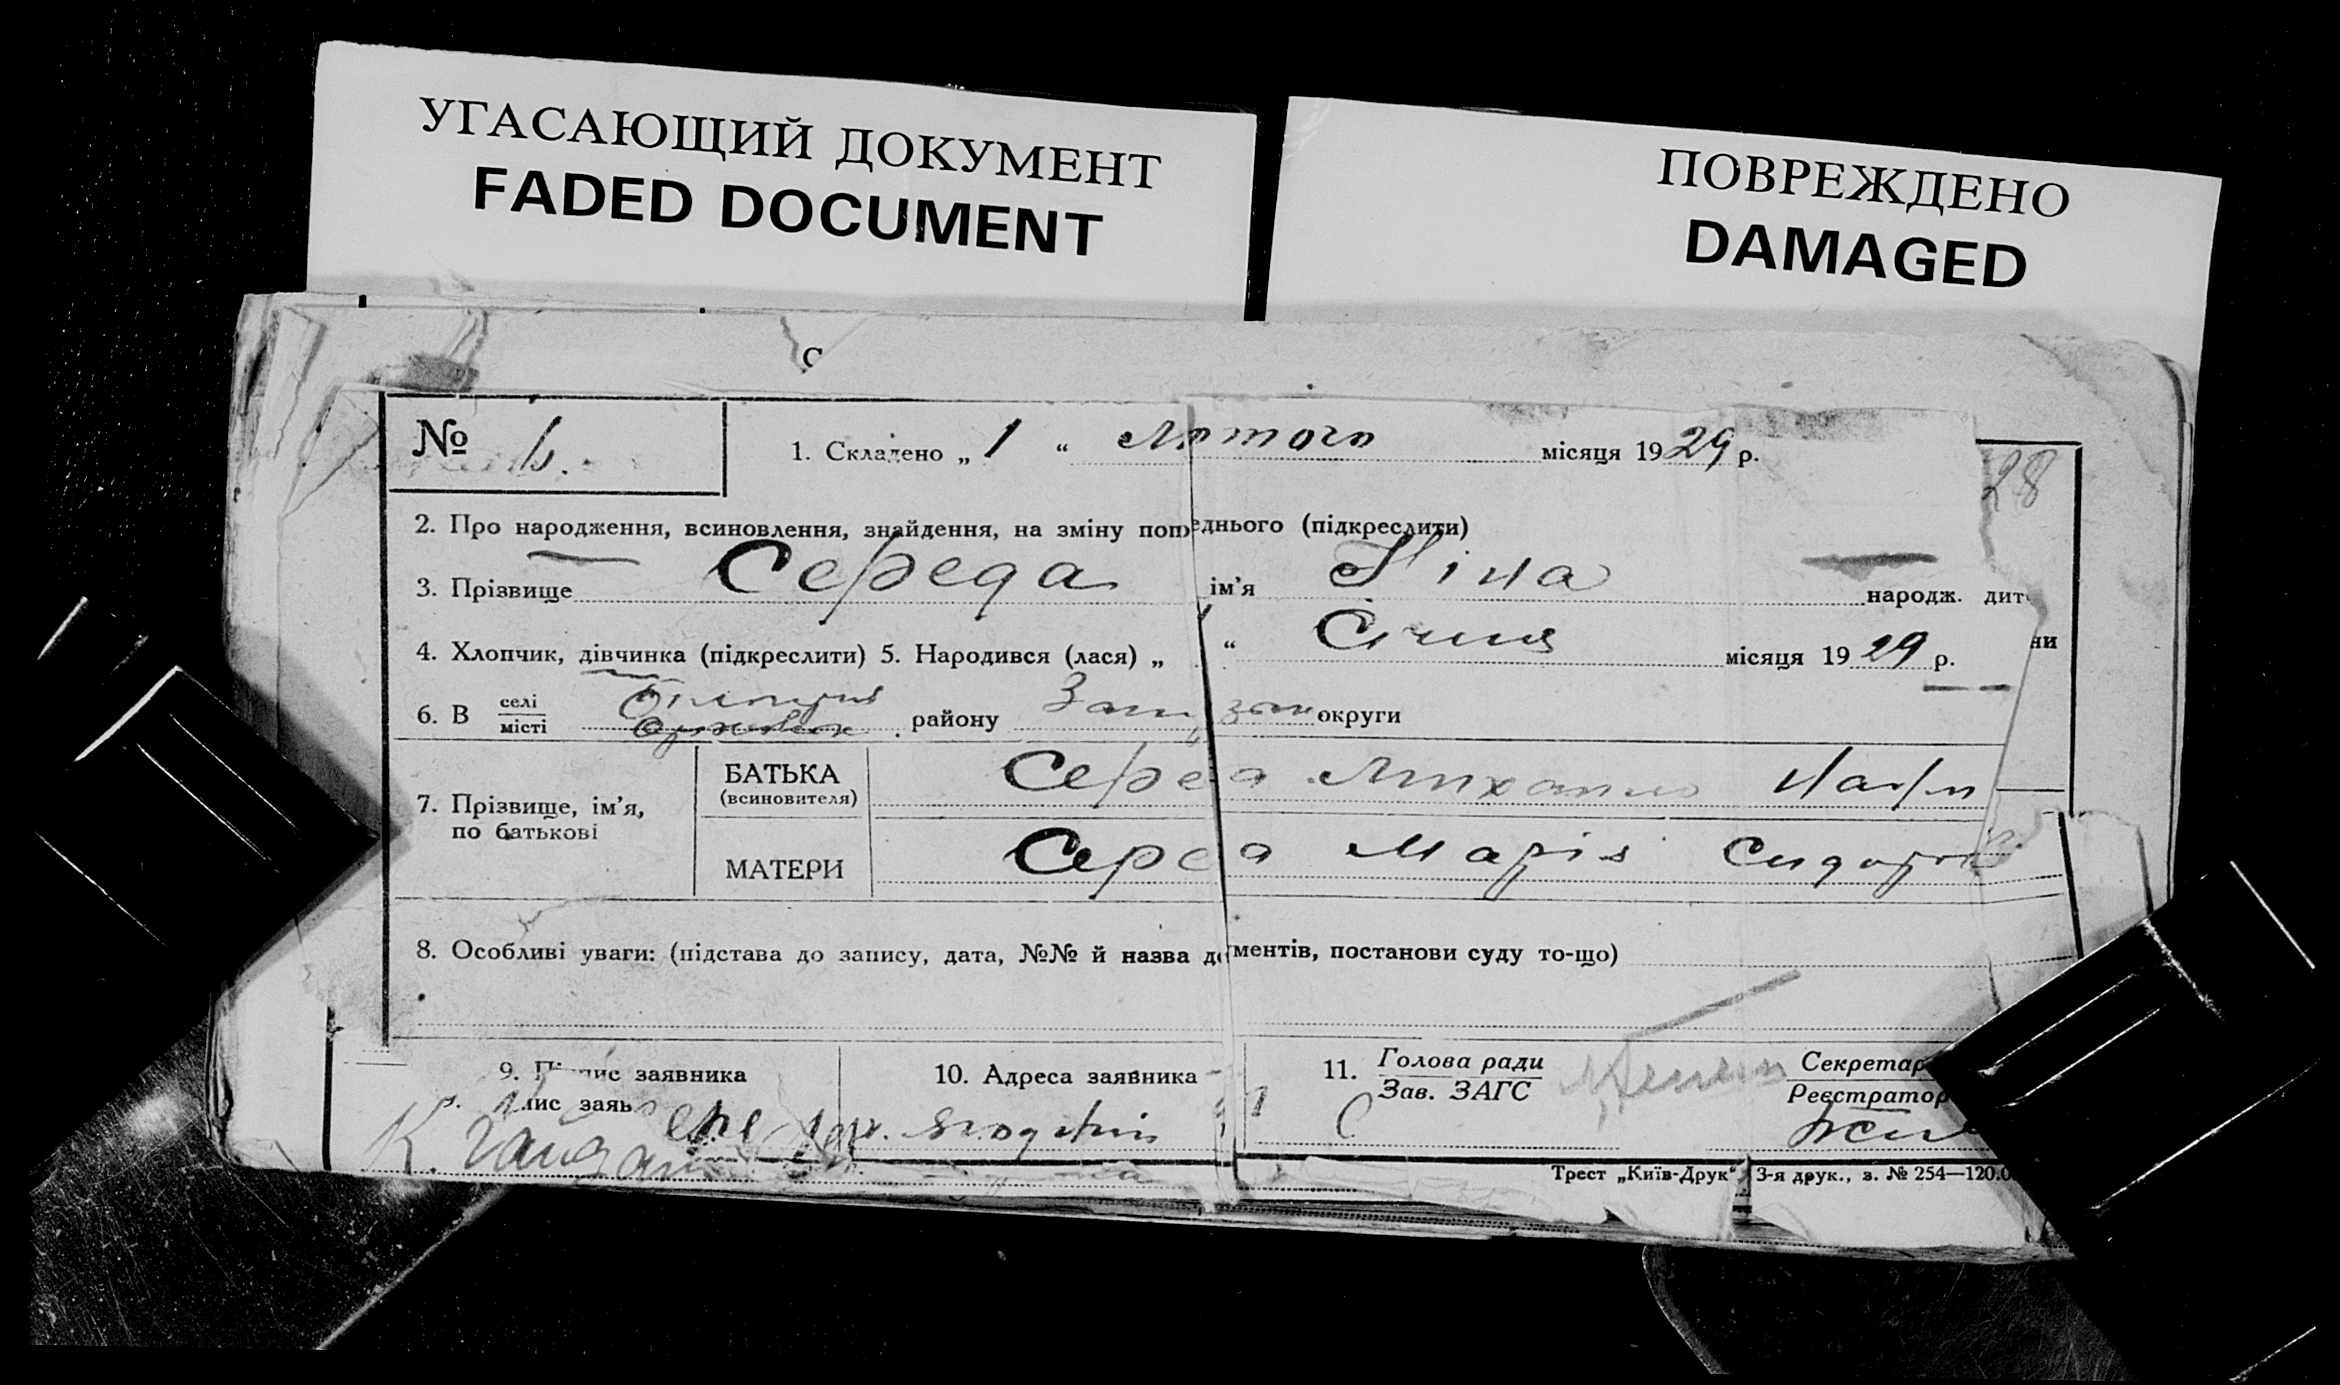 УГАСАЮЩИЙ ДОКУМЕНТ
FADED DOCUMENT
ПОВРЕЖДЕНО
DAMAGED
С
№ 6.
1. Складено „ 1 “ Лютого місяця 1929 р.
28
2. Про народження, всиновлення, знайдення, на зміну попеднього (підкреслити)
3. Прізвище Середа ім’я Ніна народж. дит
4. Хлопчик, дівчинка (підкреслити) 5. Народився (лася) „ “ Січня місяця 1929 р.
ни
6. В селі
місті району округи
7. Прізвище, ім’я,
по батькові
БАТЬКА
(всиновителя)
Середа Михайло
МАТЕРИ
Середа Марія Сидоров
8. Особливі уваги: (підстава до запису, дата, №№ й назва дментів, постанови суду то-що)
9. Підпис заявника
10. Адреса заявника
11. Голова ради
Зав. ЗАГС
Секретар
Реєстратор
пис заяв
Трест „Київ-Друк“ 3-я друк., з. № 254—120.0